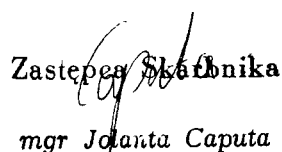 Zastępca Skarbnika
mgr Jolanta Caputa